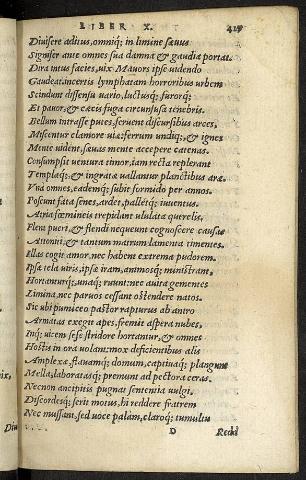 LIBER X. 419
Diuisere aditus, omniq; in limine sæuus
Signifer ante omnes sua damna & gaudia portat.
Dira intus facies, uix Mauors ipse uidendo
Gaudeat. incertis lymphatam horroribus urbem
Scindunt dissensu uario, luctusq;, furorq;
Et pauor, & cæcis fuga circunfusa tenebris.
Bellum intrasse putes, feruent discursibus arces,
Miscentur clamore uiæ: ferrum undiq;, & ignes
Mente uident, sæuas mente accepere catenas.
Consumpsit uentura timor, iam tecta replerant
Templaq;: & ingratæ uallantur planctibus aræ.
Vna omnes, eademq; subit formido per annos.
Poscunt fata senes, ardet, palletq; iuuentus.
Atria fœmineis trepidant ululata querelis.
Flent pueri, & flendi nequeunt cognoscere causas
Attoniti, & tantum matrum lamenta timentes.
Illas cogit amor. nec habent extrema pudorem.
Ipsæ tela uiris, ipsæ iram, animosq; ministrant,
Hortanturq;, unaq; ruunt: nec auita gementes
Limina, nec paruos cessant ostendere natos.
Sic ubi pumiceo pastor rapturus ab antro
Armatas exegit apes, fremit aspera nubes,
Inq; uicem sese stridore hortantur, & omnes
Hostis in ora uolant: mox deficientibus alis
Amplexæ, flauamq; domum, captiuaq; plangunt
Mella, laboratasq; premunt ad pectora ceras.
Necnon ancipitis pugnat sententia uulgi.
Discordesq; serit motus, hi reddere fratrem
Nec mussant, sed uoce palam, claroq; tumultu
D Reddi